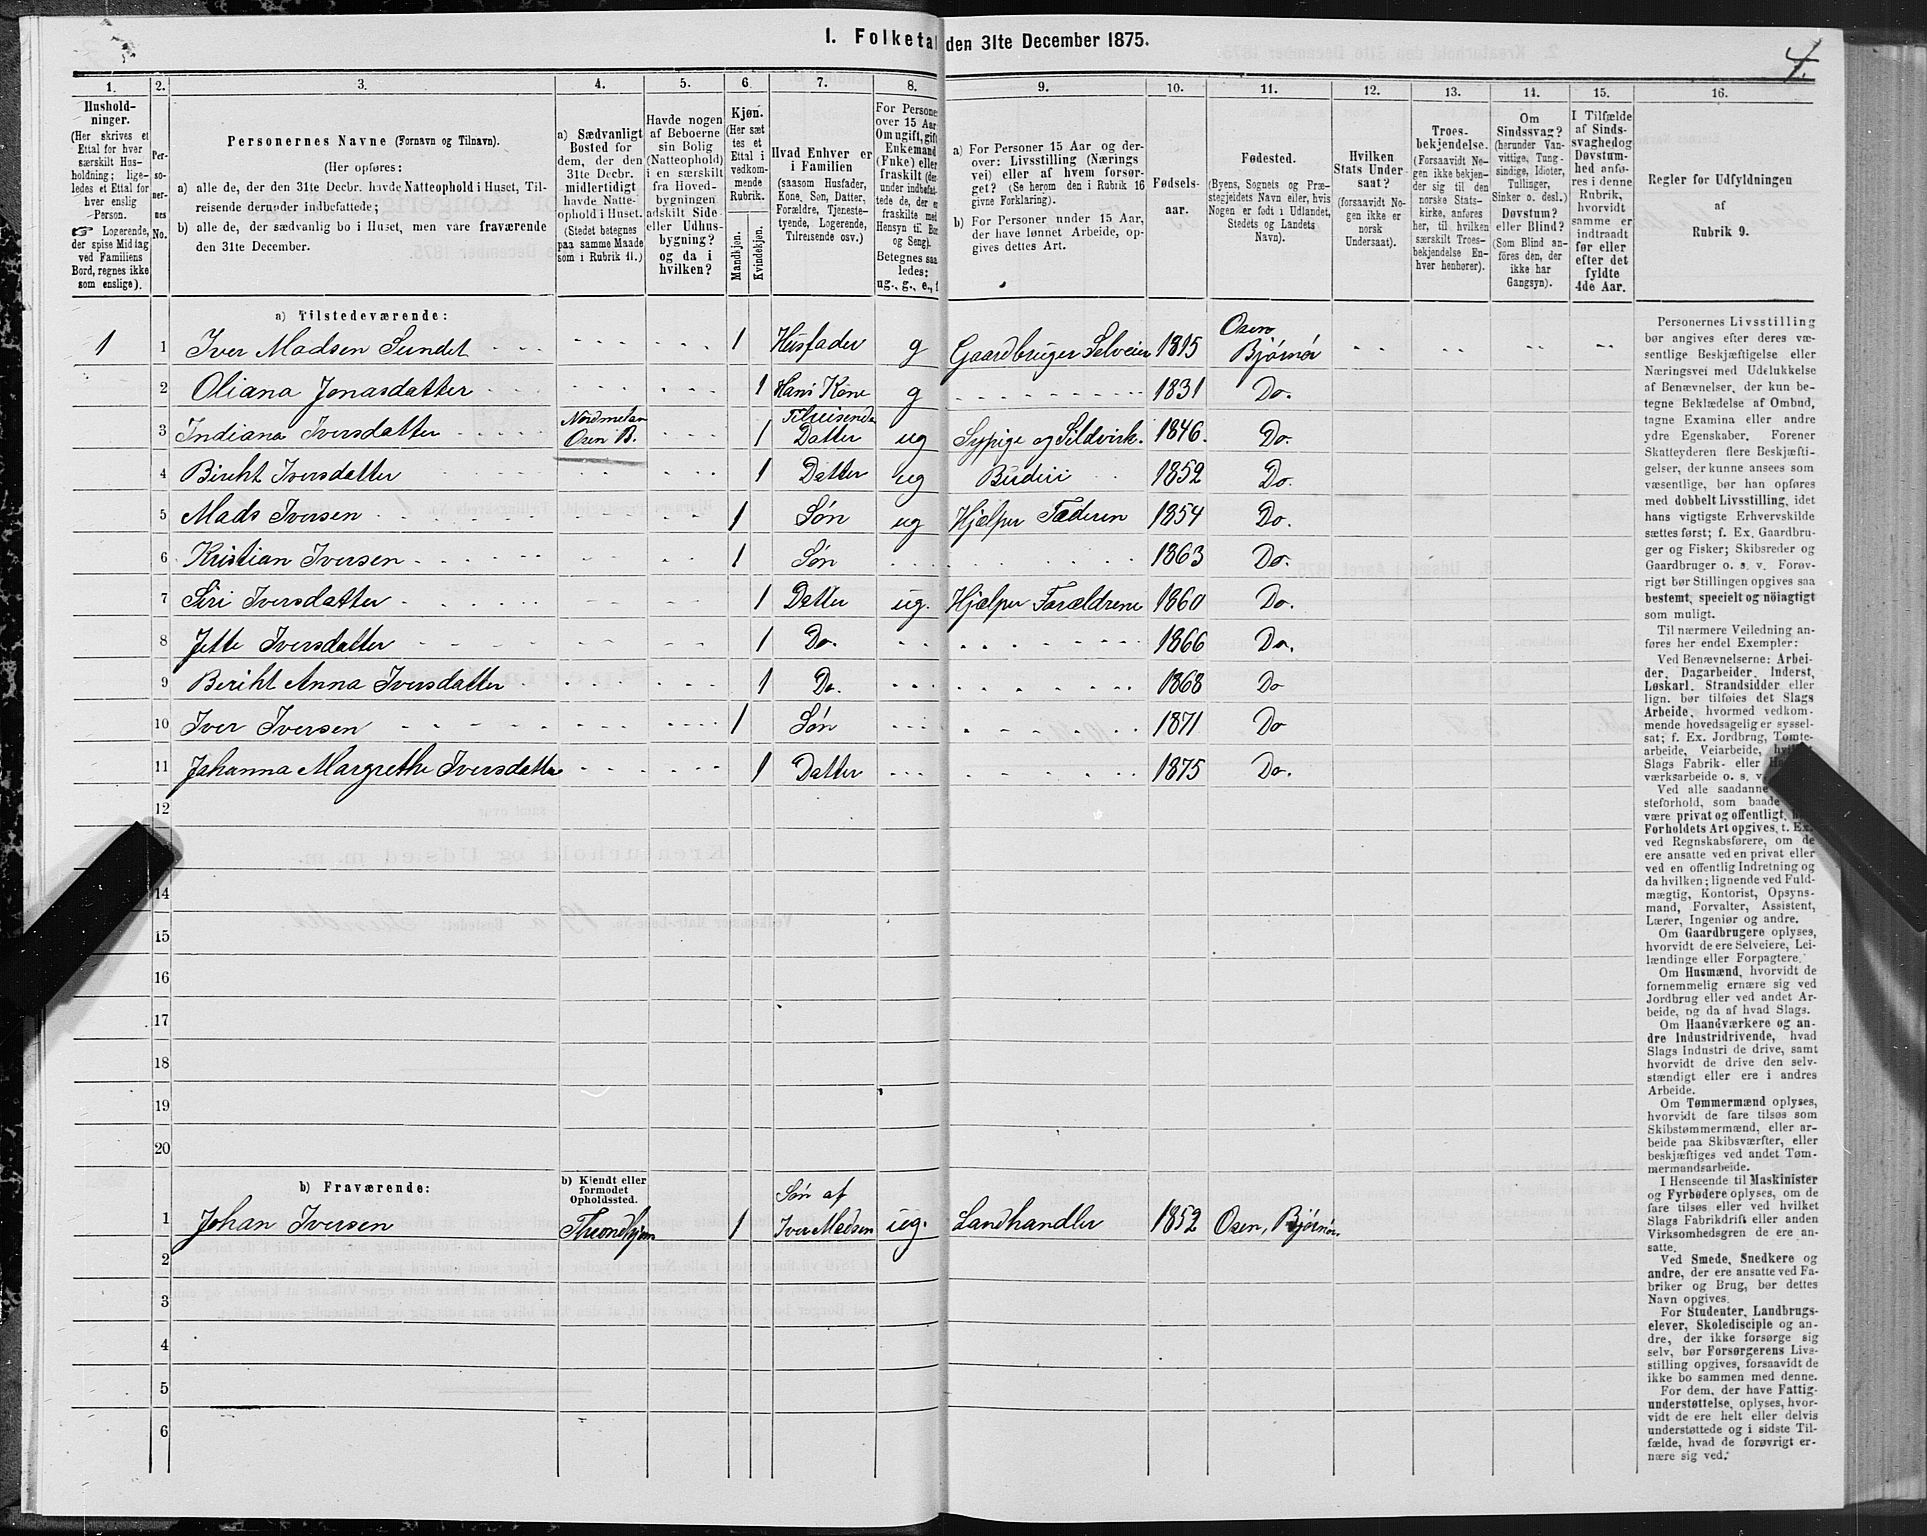 I. Folketal den 31te December 1875.
4.
1.
2.
3.
4.
5.
6
7.
8.
9.
10.
11.
12.
13.
14.
15.
16.
Hushold-
ninger.
(Her skrives et
Ettal for hver
særskilt Hus-
holdning; lige-
ledes et Ettal for
hver enslig
Person.
☞ Logerende,
der spise Midtag
ved Familiens
Bord, regnes ikke
som enslige).
Per-
so-
ner-
nes
No.
Personernes Navne (Fornavn og Tilnavn).
(Her opføres:
a) alle de, der den 31te Decbr. havde Natteophold i Huset, Til-
reisende derunder indbefattede;
b) alle de, der sædvanlig bo i Huset, men vare fraværende
den 31te December.
a) Sædvanligt
Bosted for
dem, der den
31te Decbr.
midlertidigt
havde Natte-
ophold i Huset.
(Stedet betegnes
paa samme Maade
som i Rubrik 11.)
Havde nogen
af Beboerne
sin Bolig
(Natteophold)
i en særskilt
fra Hoved-
bygningen
adskilt Side-
eller Udhus-
bygning?
og da i
hvilken?
Kjøn.
(Her sæt-
tes et
Ettal i
vedkom-
mende
Rubrik.
Mandkjøn.
Kvindekjøn.
Hvad Enhver er
i Familien
(saasom Husfader,
Kone, Søn, Datter,
Forældre, Tjeneste-
tyende, Logerende,
Tilreisende osv.)
For Persone
over 15 Aar
Om ugift, gift
Enkemand
(Fuke) eller
fraskilt (der
under indbefat-
tede de, der e
fraskilte med
Hensyn til Bor
og Seng).
Betegnes saa
ledes:
ug., g., e., f
a) For Personer 15 Aar og der-
over: Livsstilling (Nærings
vei) eller af hvem forsør-
get? (Se herom den i Rubrik 16
givne Forklaring).
b) For Personer under 15 Aar,
der have lønnet Arbeide, op-
gives dettes Art.
Fødsels-
aar.
Fødested.
(Byens, Sognets og Præ-
stegjeldets Navn eller, hvis
Nogen er født i Udlandet,
Stedets og Landets
Navn).
Hvilken
Stats Under
saat?
(forsaavidt No-
gen ikke er
norsk
Undersaat).
Troes-
bekjendelse.
(Forsaavidt No-
gen ikke bekjen-
der sig til den
norske Stats-
kirke, anføres
her, til hvilken
særskilt Troes-
bekjendelse En-
hver henhører).
Om
Sindssvag?
(herunder Van-
vittige, Tung-
sindige, Idioter,
Tullinger,
Sinker o. desl.)
Døvstum?
eller Blind?
(Som Blind an-
føres den, der
ikke har
Gangsyn).
I Tilfælde
af Sinds-
svaghed og
Døvstum-
hed anfø-
res i denne
Rubrik,
hvorvidt
samme er
indtraadt
før eller
efter det
fyldte
4de Aar.
Regler for Udfyldningen
af
Rubrik 9.
a) Tilstedeværende:
1 1 Iver Madsen Sundet 1 Husfader g Gaardbruger Selveier 1815 Osen Bjørnør
2 Oliana Jonasdatter 1 Hans Kone g 1831 Do.
3 Indiana Iversdatter Nordmelan Osen B. 1 Tilreisende Datter ug Sypige og Sildvirk. 1846. Do.
4 Béreht Iversdatter 1 Datter ug Buderi 1852 Do.
5 Mads Iversen 1 Søn ug Hjælper Faderen 1854 Do.
6 Kristian Iversen 1 Søn 1863 Do.
7 Siri Iversdatter 1 Datter ug. Hjælper Forældrene 1860 Do.
8 Jette Iversdatter 1 Do. 1866 Do.
9 Beriht Anna Iversdatter 1 Do. 1868 Do
10 Iver Iversen 1 Søn 1871 Do
11 Johanna Margrethe Iversdatter 1 Datter 1875 Do.
12
14
15
16
17
18
19
20
b) Fraværende:
b) Kjendt eller
formodet
Opholdssted.
1 Johan Iversen Throndhjem 1 Søn af Iver Madsen ug. Landhandler 1852 Osen, Bjørnør
2
3
4
5
6
Personernes Livsstilling
bør angives efter deres væ-
sentlige Beskjæftigelse eller
Næringsvei med Udelukkelse
af Benævnelser, der kun be-
tegne Beklædelse af Ombud,
tagne Examina eller andre
ydre Egenskaber. Forener
Skatteyderen flere Beskjæfti-
gelser, der kunne ansees som
væsentlige, bør han opføres
med dobbelt Livsstilling, idet
hans vigtigste Erhvervskilde
sættes først; f. Ex. Gaardbru-
ger og Fisker; Skibsreder og
Gaardbruger o. s. v. Forøv-
rigt bør Stillingen opgives saa
bestemt, specielt og nöiagtigt
som muligt.
Til nærmere Veiledning an-
føres her endel Exempler:
Ved Benævnelserne: Arbei-
der, Dagarbeider, Inderst,
Løskarl, Strandsidder eller
lign. bør tilføies det Slags
Arbeide, hvormed vedkom-
mende hovedsagelig er syssel-
sat; f. Ex. Jordbrug, Tomte-
arbeide, Veiarbeide,
Slags Fabrik- eller
værksarbeide o. s. v.
Ved alle saadanne
steforhold, som baade
være privat og offentligt,
Forholdets Art opgives, t. Ex.
ved Regnskabsførere, om de
ere ansatte ved en privat eller
ved en offentlig Indretning og
da hvilken; lignende ved Fuld-
mægtig, Kontorist, Opsyns-
mand, Forvalter, Assistent,
Lærer, Ingeniør og andre.
Om Gaardbrugere oplyses,
hvorvidt de ere Selveiere, Lei-
lændinge eller Forpagtere.
Om Husmænd, hvorvidt de
fornemmelig ernære sig ved
Jordbrug eller ved andet Ar-
beide, og da af hvad Slags.
Om Haandværkere og an-
dre Industridrivende, hvad
Slags Industri de drive, samt
hvorvidt de drive den selv-
stændigt eller ere i andres
Arbeide.
Om Tømmermænd oplyses,
hvorvidt de fare tilsøs som
Skibstømmermænd, eller ar-
beide paa Skibsværfter, eller
beskjæftiges ved andet Tøm-
mermandsarbeide.
I Henseende til Maskinister
og Fyrbødere oplyses, om de
fare tilsøs eller ved hvilket
Slags Fabrikdrift eller anden
Virksomhedsgren de ere an-
satte.
Ved Smede, Snedkere og
andre, der ere ansatte ved Fa-
briker og Brug, bør dettes
Navn opgives.
For Studenter, Landbrugs-
elever, Skoledisciple og an-
dre, der ikke forsørge sig
selv, bør Forsørgerens Livs-
stilling opgives, forsaavidt de
ikke bo sammen med denne.
For dem, der have Fattig-
understøttelse, oplyses, hvor-
vidt de ere helt eller delvis
understøttede og i sidste Til-
fælde, hvad de forøvrigt er-
nære sig ved.